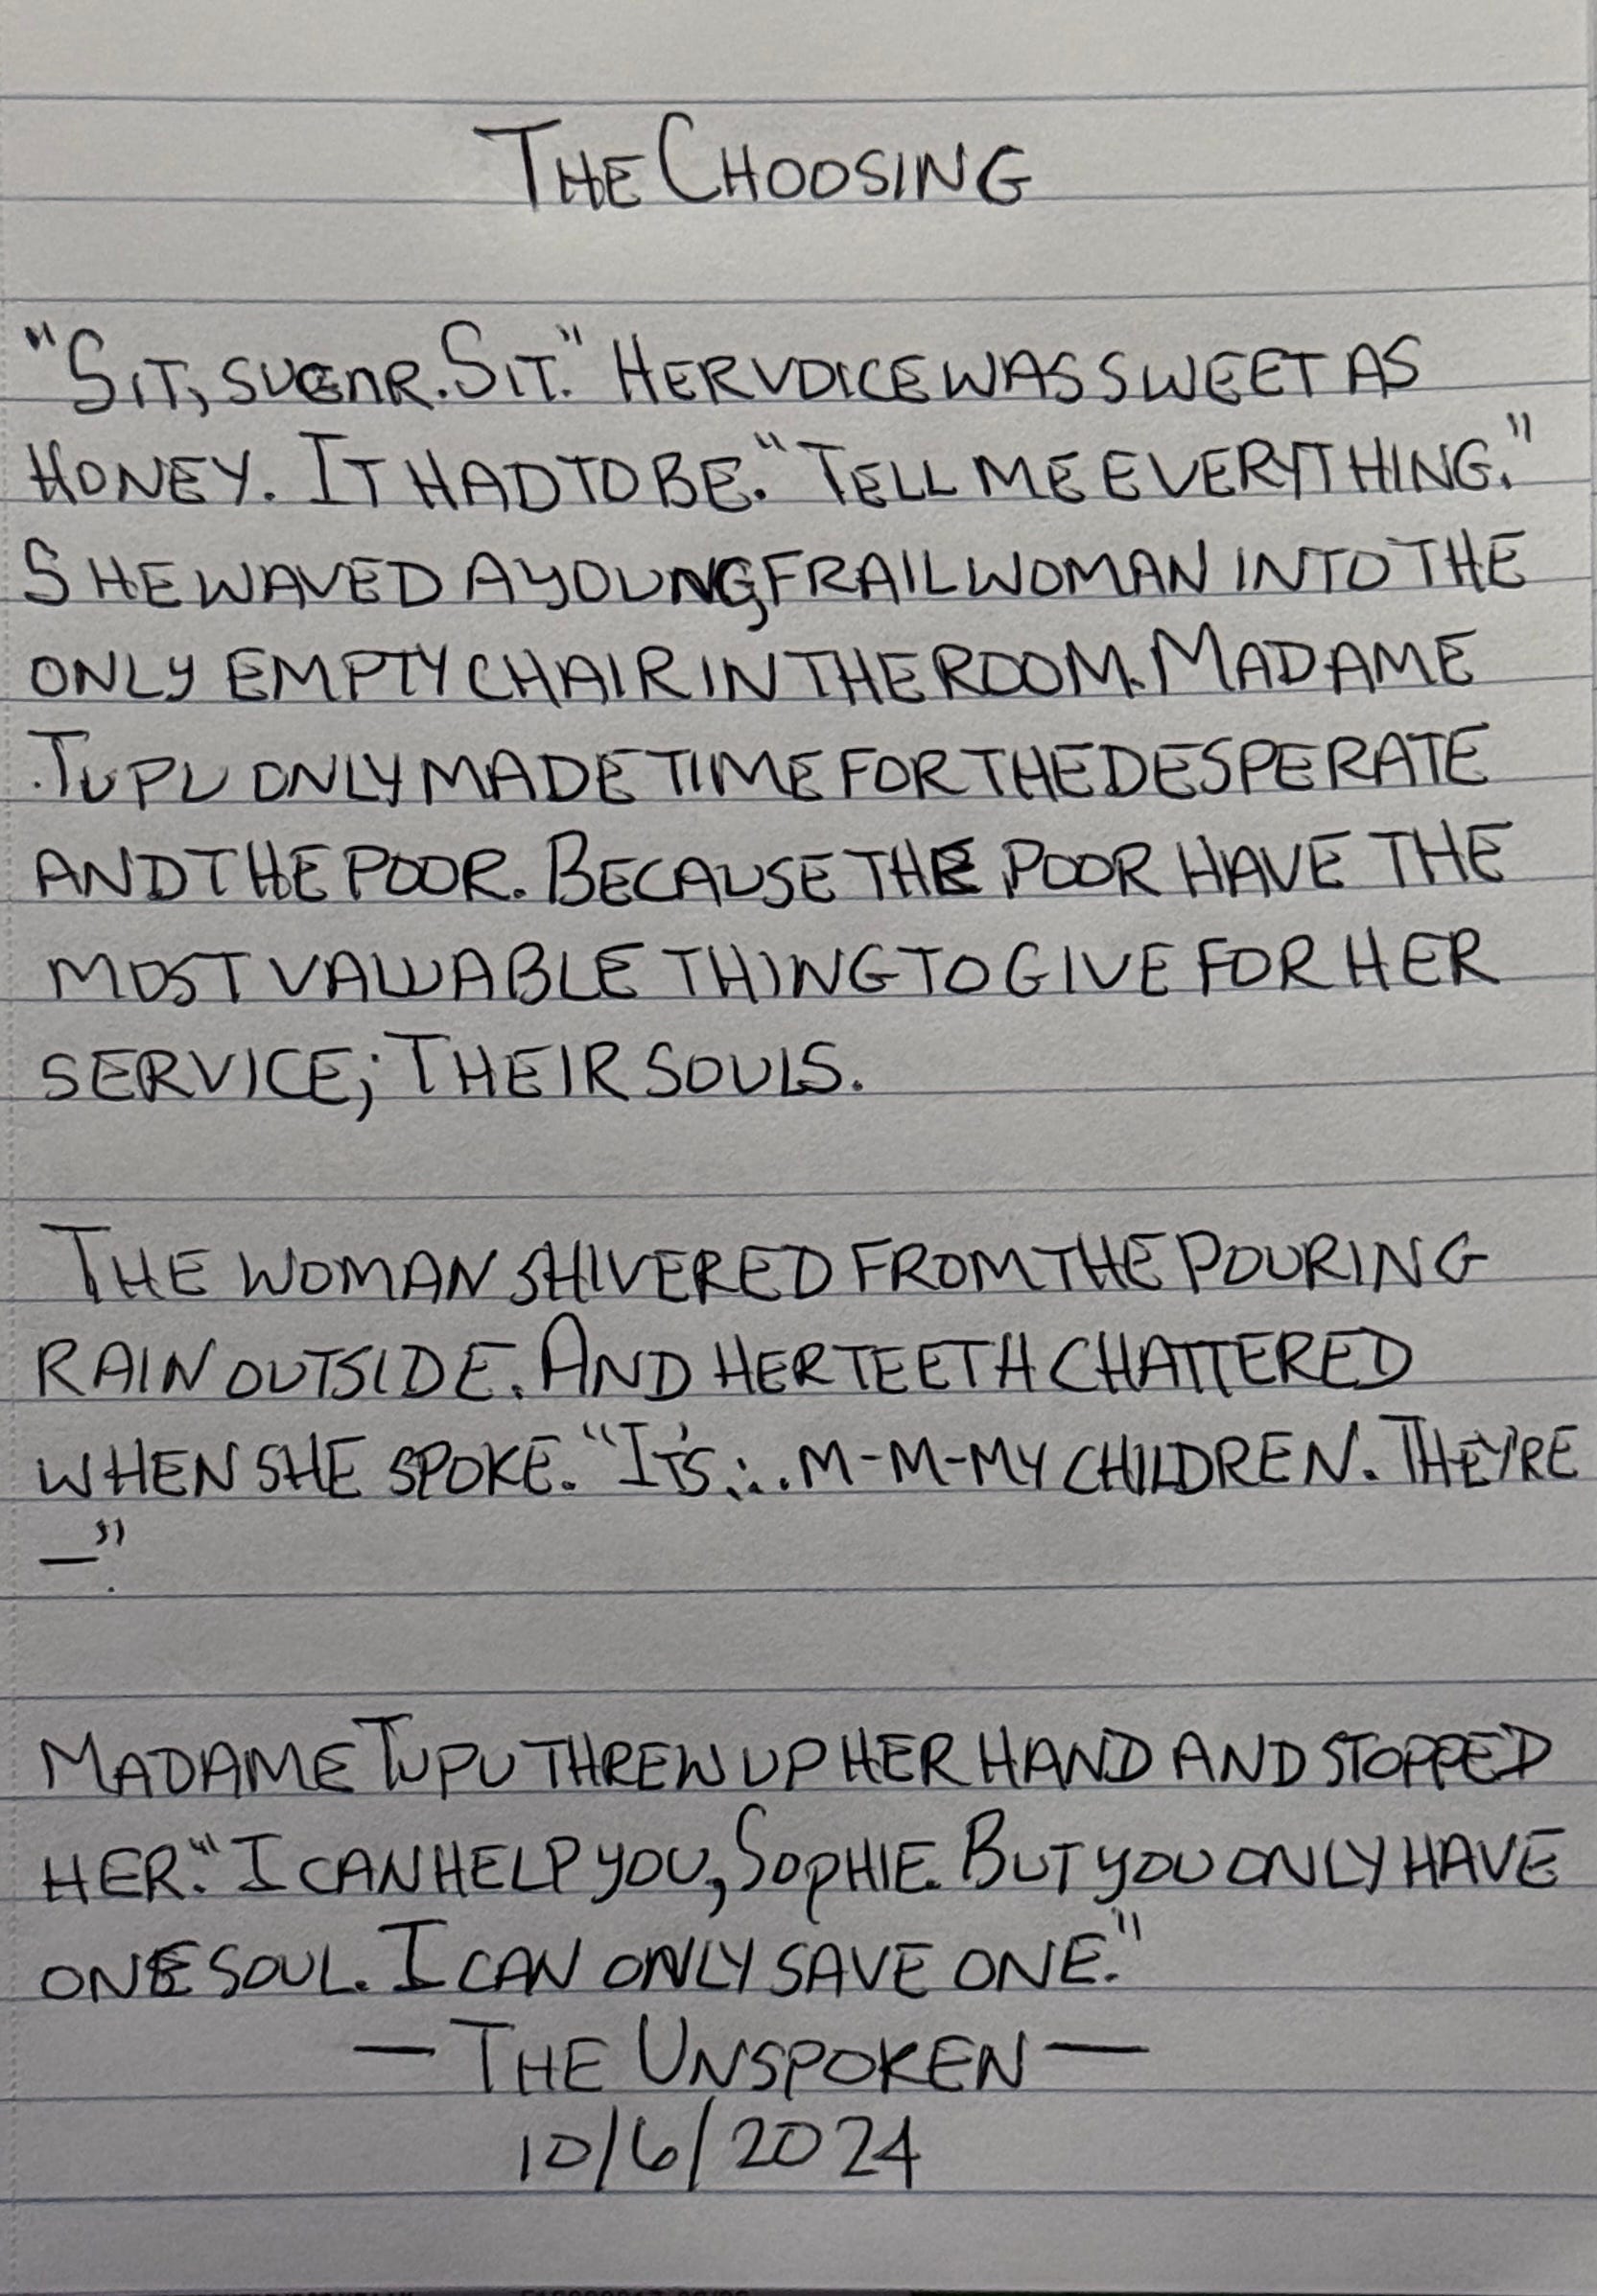 THE CHOOSING
"SIT, SUGAR. SIT." HER VOICE WAS SWEET AS
HONEY. IT HAD TO BE. "TELL ME EVERYTHING."
SHE WAVED A YOUNG, FRAIL WOMAN INTO THE
ONLY EMPTY CHAIR IN THE ROOM. MADAME
TUPU ONLY MADE TIME FOR THE DESPERATE
AND THE POOR. BECAUSE THE POOR HAVE THE
MOST VALUABLE THING TO GIVE FOR HER
SERVICE; THEIR SOULS.
THE WOMAN SHIVERED FROM THE POURING
RAIN OUTSIDE. AND HER TEETH CHATTERED
WHEN SHE SPOKE. "IT'S... M-M-MY CHILDREN. THEY'RE
—"
MADAME TUPU THREW UP HER HAND AND STOPPED
HER. "I CAN HELP YOU, SOPHIE. BUT YOU ONLY HAVE
ONE SOUL. I CAN ONLY SAVE ONE."
— THE UNSPOKEN —
10/6/2024